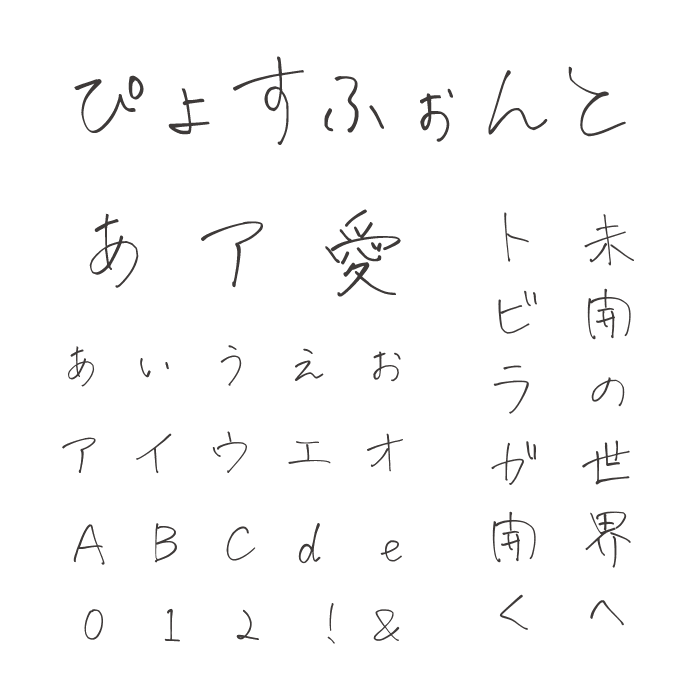 ぴょすふぉんと
あア愛
あいうえお
アイウエオ
ABCde
012!&
未開の世界へ
トビラが開く